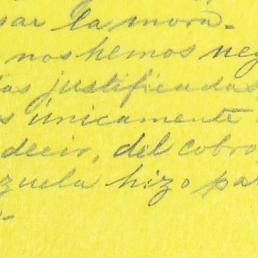 sar la mora-
nos hemos neg
as justificadas
s únicamente
decir, del cobro
zuela hizo pa
-